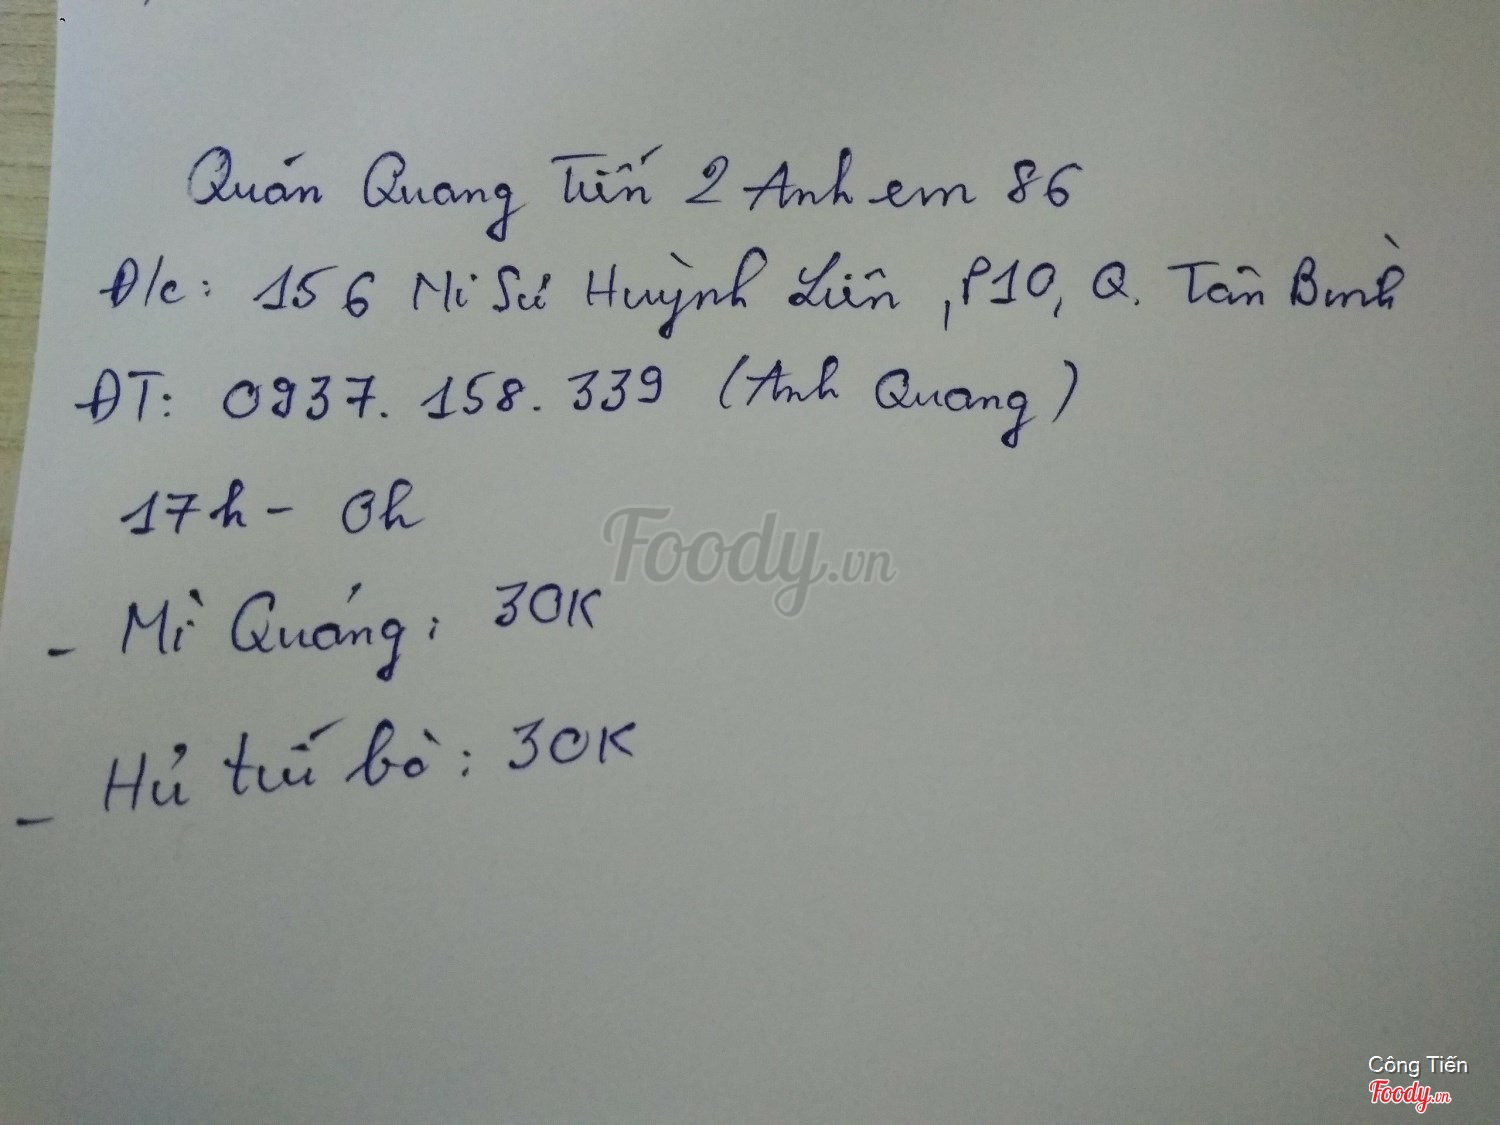 Quán Quang Tiến 2 Anh em 86
Đ/c: 156 Ni Sư Huỳnh Liên, P10, Q. Tân Bình
ĐT: 0937.158.339 (Anh Quang)
17h - 0h
Foody.vn
- Mì Quảng: 30K
- Hủ tiếu bò: 30K
Công Tiến
Foody.vn